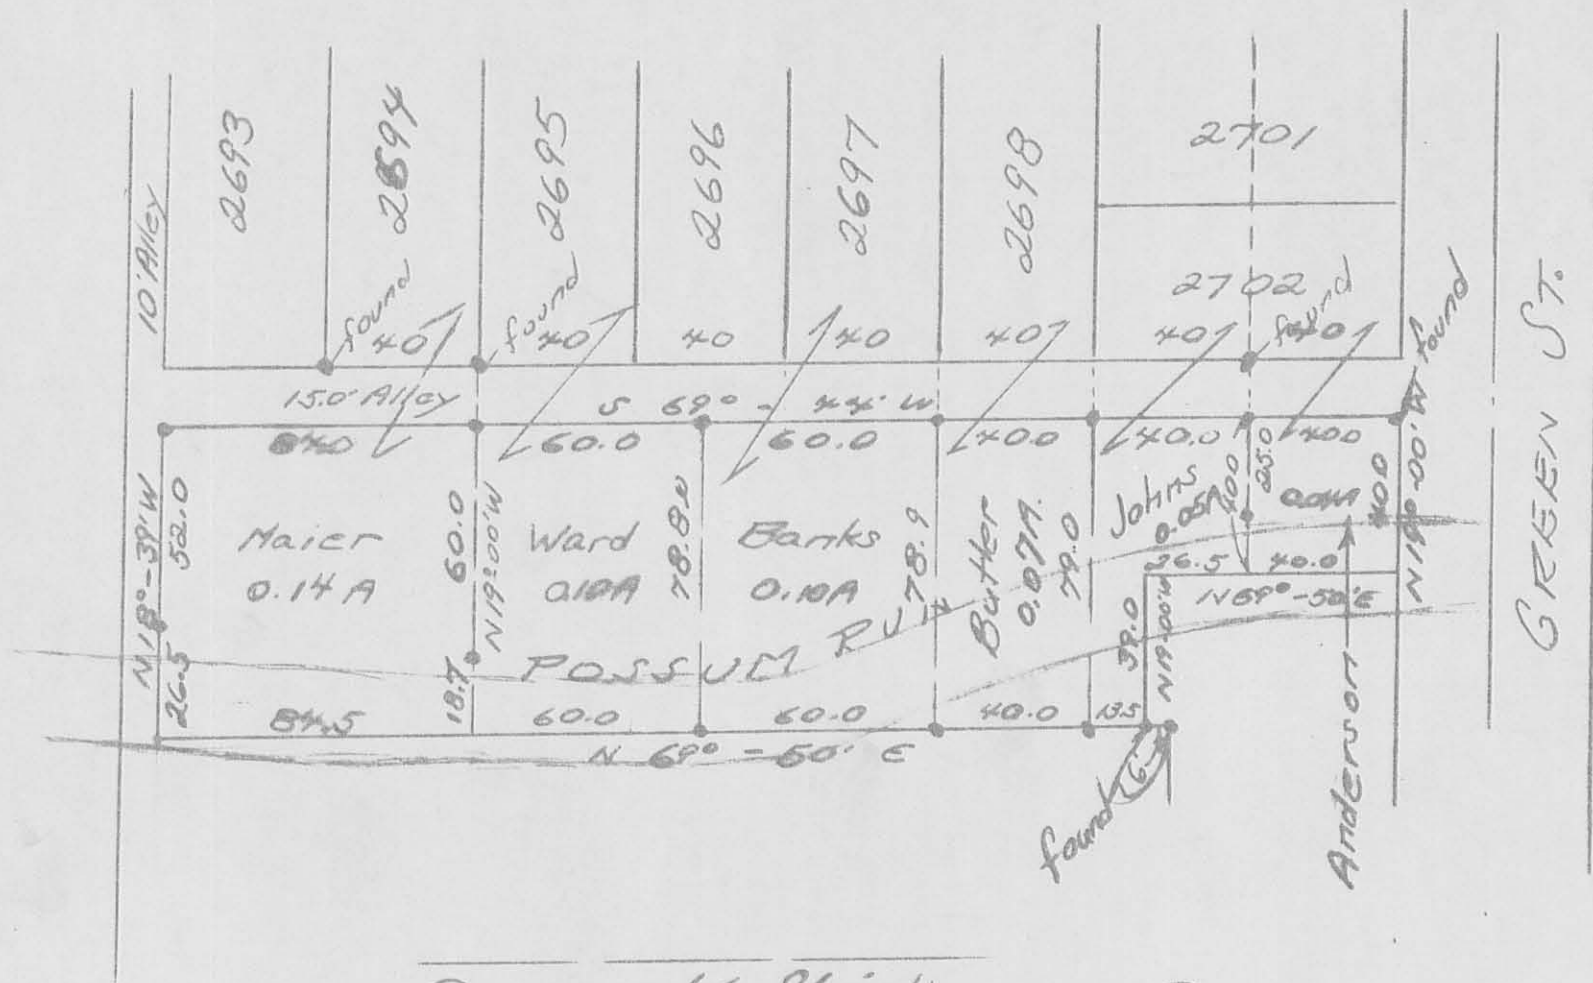 10' Alley
2693
2694
2695
2696
2697
2698
2701
2702
found
found
found
found
40
40
40
40
40
40
40
15.0' Alley
S 69° - 44' W
84.0
60.0
60.0
40.0
40.0
40.0
GREEN ST.
N 18° - 39' W
52.0
26.5
Maier
0.14 A
60.0
18.7
N 19° 00' W
Ward
0.10A
78.8
Banks
0.10A
78.9
Butler
0.07A.
79.0
Johns
0.05A
40.0
25.0
0.04A
40.0
N 19° - 00' W
26.5
40.0
N 69° - 50' E
39.0
N 19° - 00' W
POSSUM RUN
84.5
60.0
60.0
40.0
13.5
N 69° - 50' E
found
Anderson